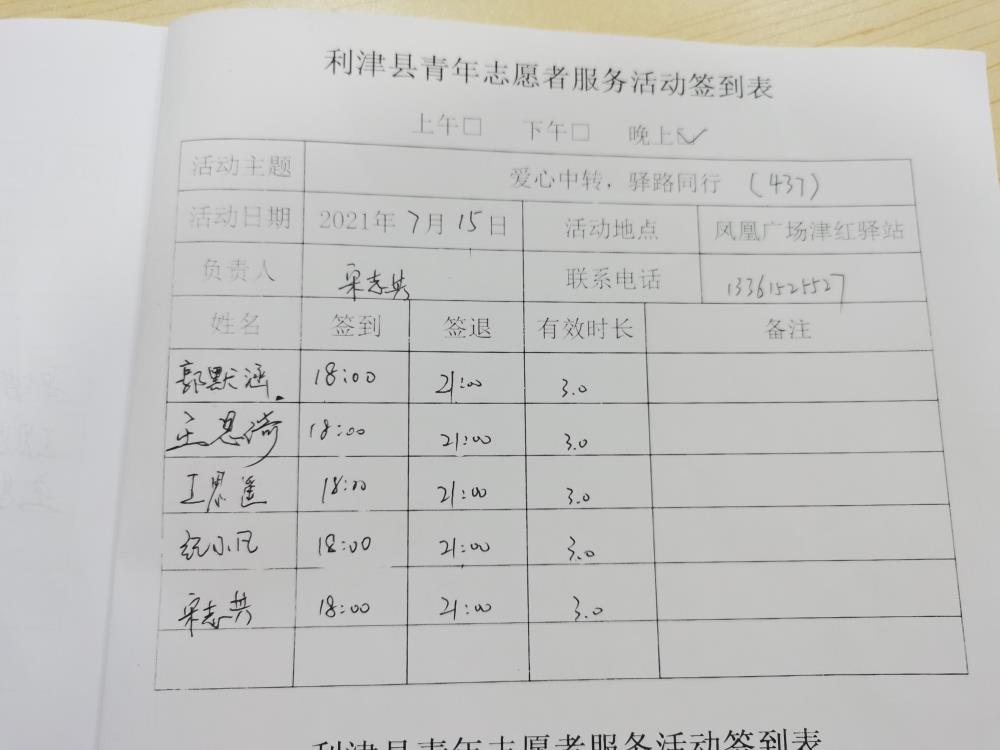 利津县青年志愿者服务活动签到表
上午□ 下午□ 晚上☑
活动主题 爱心中转，驿路同行 (437)
活动日期 2021年7月15日 活动地点 凤凰广场津红驿站
负责人 宋志共 联系电话 13361525527
姓名 签到 签退 有效时长 备注
郭默涵 18:00 21:00 3.0
王恩漪 18:00 21:00 3.0
王思遥 18:00 21:00 3.0
纪小凡 18:00 21:00 3.0
宋志共 18:00 21:00 3.0
利津县青年志愿者服务活动签到表